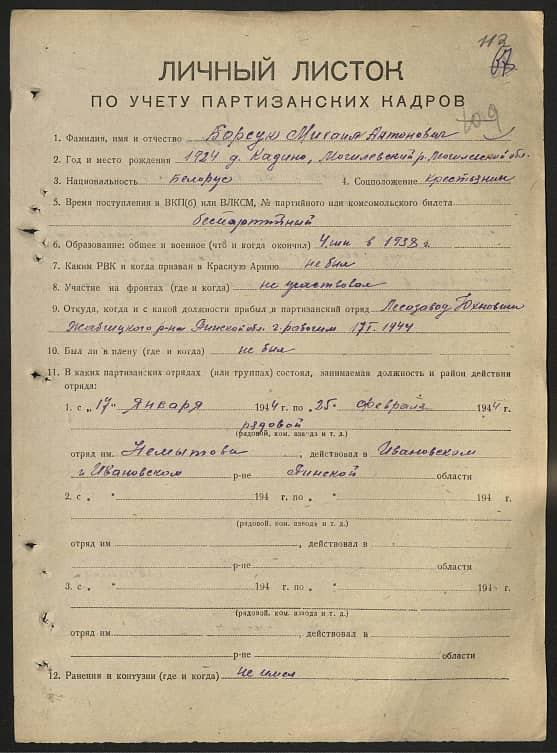 113
109
ЛИЧНЫЙ ЛИСТОК
ПО УЧЕТУ ПАРТИЗАНСКИХ КАДРОВ
1. Фамилия, имя и отчество Борсук Михаил Антонович
2. Год и место рождения 1924 д. Кадино, Могилевский р. Могилевской обл.
3. Национальность Белорус 4. Соцположение Крестьянин
5. Время поступления в ВКП(б) или ВЛКСМ, № партийного или комсомольского билета
беспартийный
6. Образование: общее и военное (что и когда окончил) 4 кл в 1938 г.
7. Каким РВК и когда призван в Красную Армию не был
8. Участие на фронтах (где и когда) не участвовал
9. Откуда, когда и с какой должности прибыл в партизанский отряд Лесозавод
р-на Пинской обл. рабочим 17 I. 1944
10. Был ли в плену (где и когда) не был
11. В каких партизанских отрядах (или группах) состоял, занимаемая должность и район действия
отряда:
1. с „17“ Января 1944 г. по „25“ Февраля 1944 г.
рядовой
(рядовой, ком. взвода и т. д.)
отряд им. Немытова, действовал в Ивановском
и Ивановском р-не Пинской области
2. с „ “ 194 г. по „ “ 194 г.
(рядовой, ком. взвода и т. д.)
отряд им. , действовал в
р-не области
3. с „ “ 194 г. по „ “ 194 г.
(рядовой, ком. взвода и т. д.)
отряд им. , действовал в
р-не области
12. Ранения и контузии (где и когда) не имел